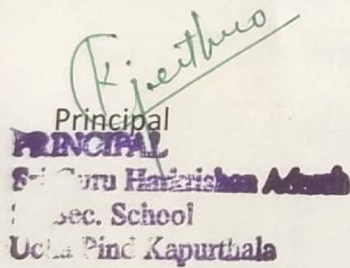 Principal
PRINCIPAL
Sri Guru Harkrishan Adarsh
Sec. School
Ucha Pind Kapurthala